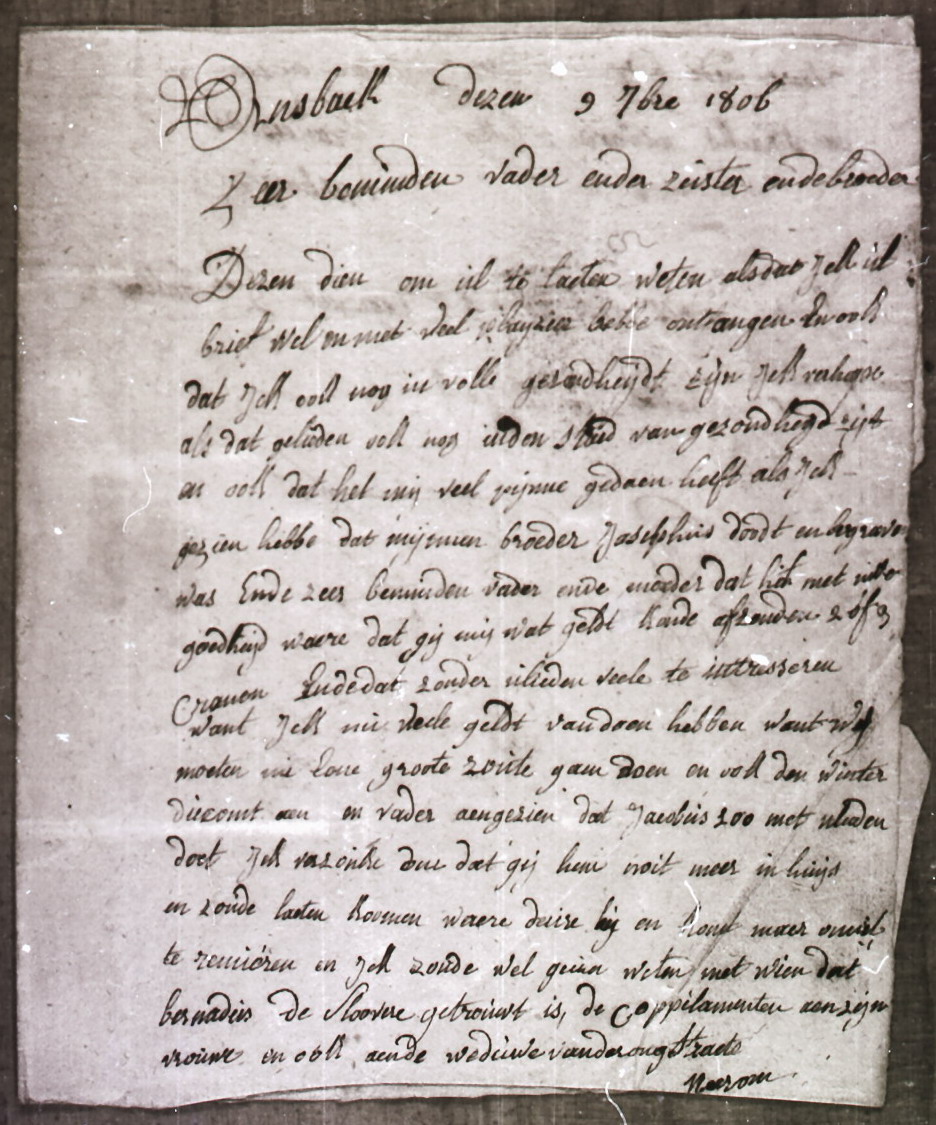 Onsback dezen 9 7bre 1806
Zeer beminden vader ende zuster ende broeder
Dezen dien om ul te laeten weten als dat Jck ul
brief wel en met veel playzier hebbe ontfangen En ook
dat Jck ook nog in volle gezondheijdt zijn Jck verhope
als dat gelieden ook nog in den staed van gezondhegd zijt
en ook dat het mij veel pijnne gedaen heeft als Jck
gezien hebbe dat mijnnen broeder Josephus doodt en begraven
was Ende zeer beminden vader ende moeder dat het met
goedheijd waere dat gij mij wat geldt konde afzenden 2 of 3
Cronen Ende dat zonder ulieden veele te intresseren
want Jck nu veele geldt van doen hebben want wij
moeten nu Eene groote gaen doen en ook den winter
die comt aen en vader aengezien dat Jacobus zoo met ulieden
doet Jck verzouke dat gij hem noit meer in huijs
en zoude laeten koomen waere hij en komt maer om ul
te reniéren en Jck zoude wel geiren weten met wien dat
bernadus De Sloovere getrouwt is, de Coppelamenten aen zijn
vrouwe en ook aen de weduwe van der ougstraete
Keerom